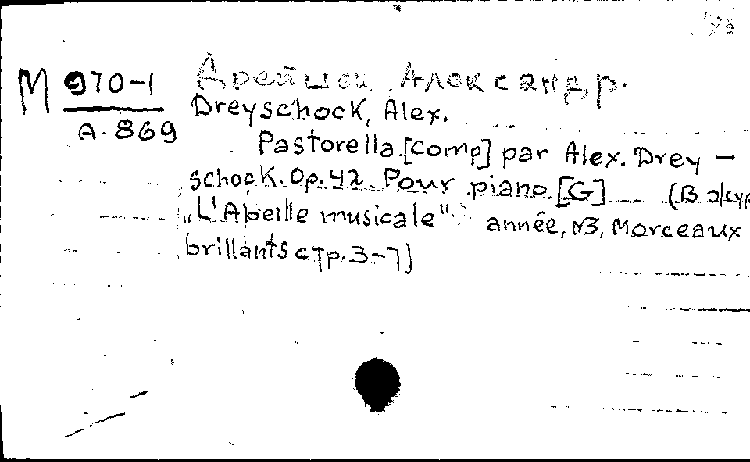 М 970-1
А-869
Дрейшок, Александр.
Dreyschock, Alex.
Pastorella [comp] par Alex. Drey-
schock. Op. 42 Pour piano [G] (В журн
„L'Abeille musicale" année, N3, Morceaux
brillants стр. 3-7)